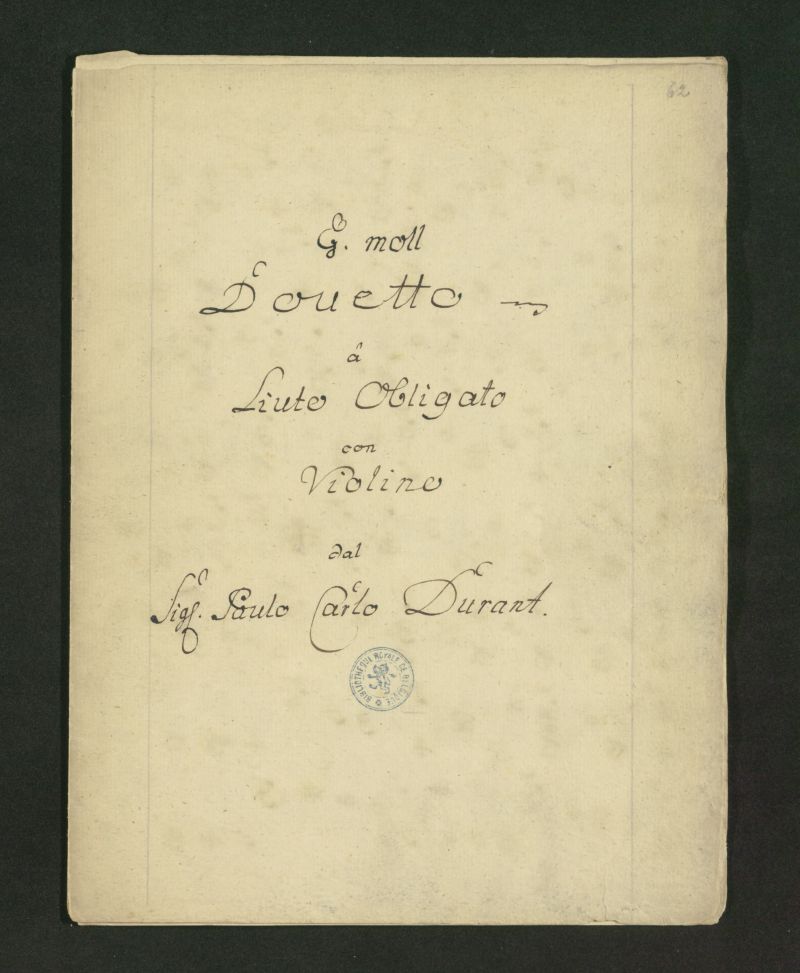 62
G. moll
Douetto
â
Liuto Obligato
con
Violino
dal
Sigr. Paulo Carlo Durant.
BIBLIOTHEQUE ROYALE DE BELGIQUE